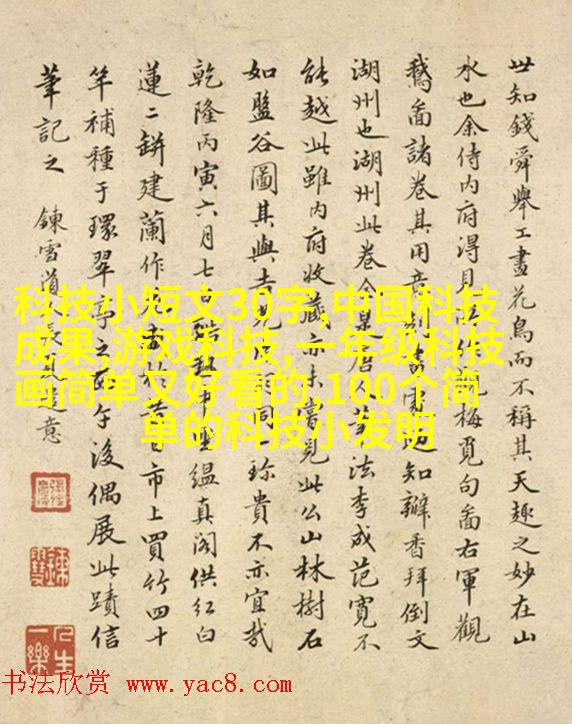 世知錢舜舉工畫花鳥而不稱其天趣之妙在山
水也余侍内府得見作梅覓句畵右軍觀
鵝畵諸卷其用意知瓣香拜倒文
湖州也湖州此卷是唐人筆法李成范寬不
能越此雖内府收藏亦未嘗見此公山林樹石
如盤谷圖其與同珍貴不亦宜哉
乾隆丙寅六月七日酷熱中坐縕真阁供红白
蓮二缾建蘭作於市上買竹四十
竿補種于環翠亭之午後偶展此蹟信
筆記之 鍊雪道意
科技小短文30字,中国科技
成果,游戏科技,一年级科技
画简单又好看的,100个简
单的科技小发明
人生一樂
书法欣赏 www.yac8.com